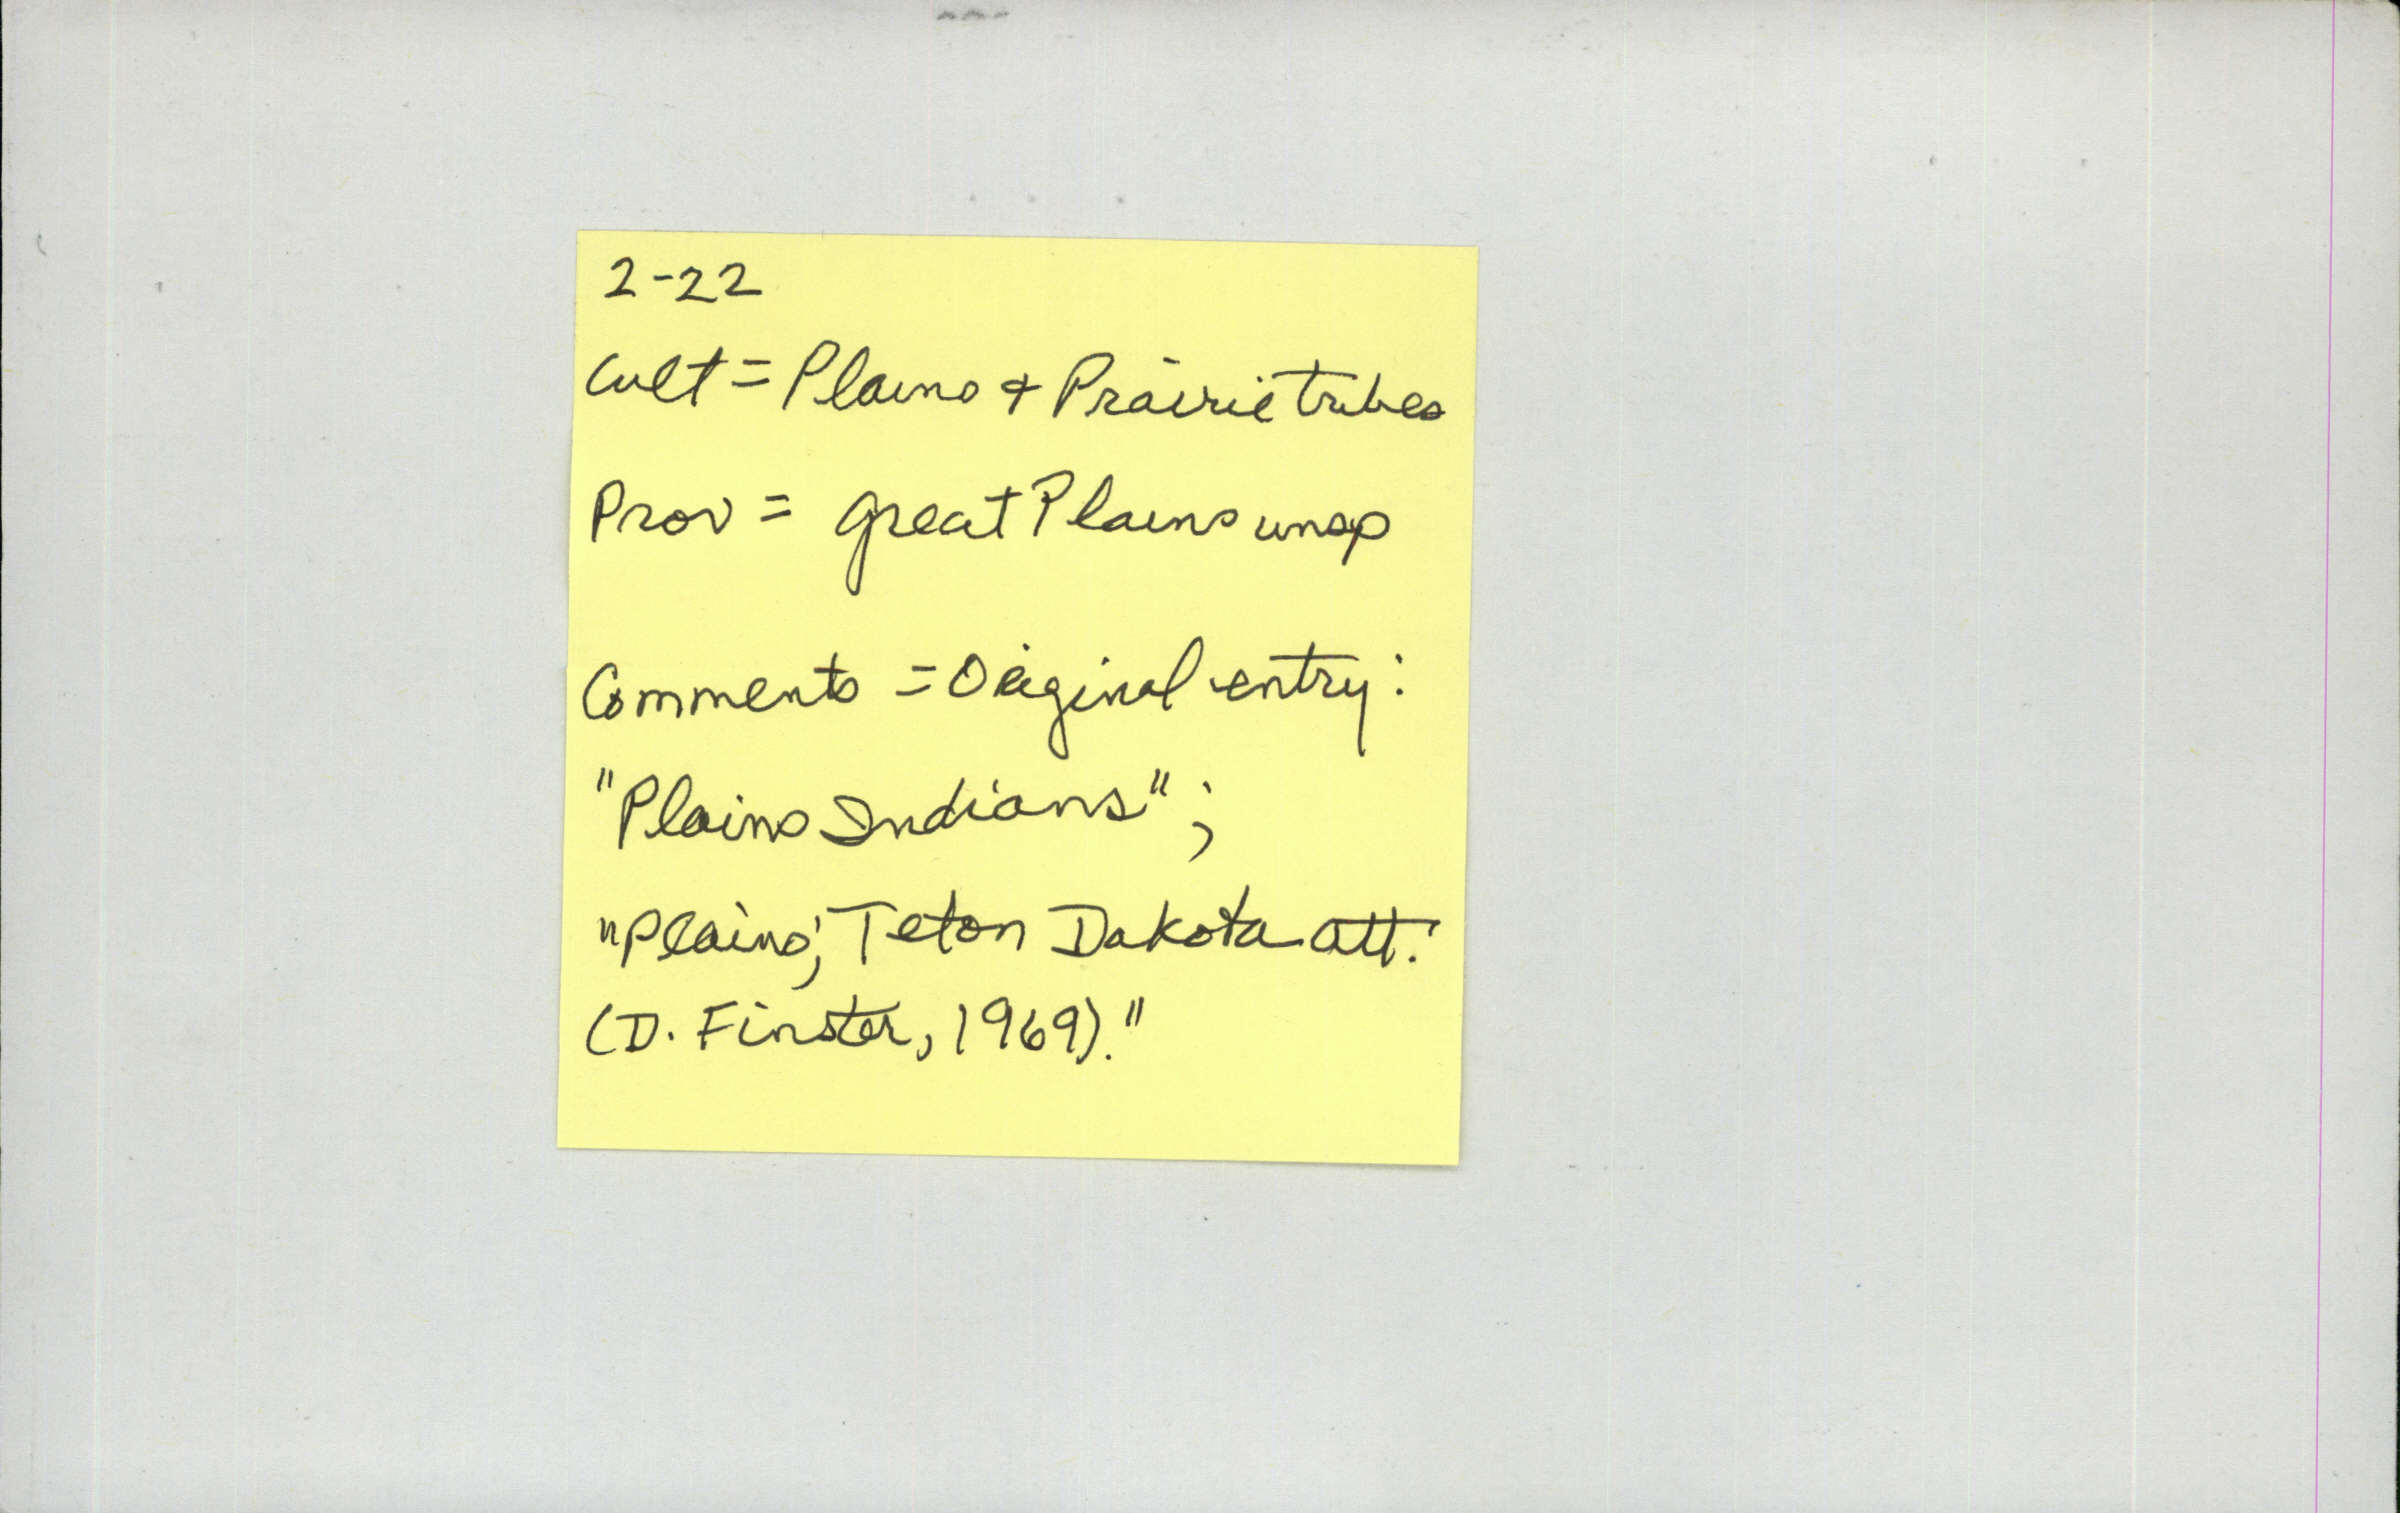 2-22
Cult = Plains & Prairie tribes
Prov = Great Plains unsp
Comments = Original entry:
"Plains Indians";
"Plains; Teton Dakota att.
(D. Finster, 1969)."